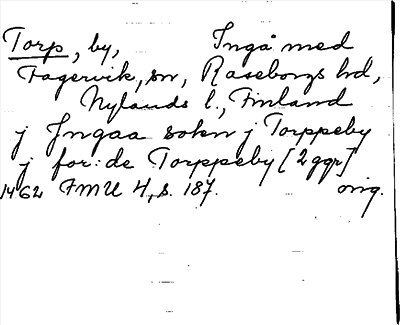 Torp, by, Ingå med
Fagervik, sn, Raseborgs hd,
Nylands l., Finland
j Jngaa sokn j Torppeby
j for:de Torppeby [2 ggr]
1462 FMU 4, s. 187. orig.